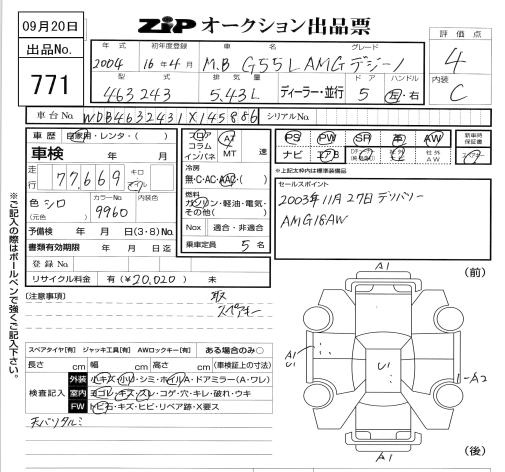 09月20日
ZiP オークション出品票
出品No.
771
年式 初年度登録 車名 グレード
2004 16年4月 M.B G55L AMG デジーノ
型式 排気量 ドア ハンドル
463243 5.43L ディーラー・並行 5 左・右
評価点
4
内装
C
車台No. WDB4632431X145886 シリアルNo.
車歴 自家用・レンタ・( )
車検 年 月
走行 77,669 キロ マイル
色 シロ カラーNo. 内装色
(元色) 9960
予備検 年 月 日(3・8)No.
書類有効期限 年 月 日迄
登録No
リサイクル料金 有(¥20,020) 未
フロア AT
コラム
インパネ MT 速
冷房
無・C・AC・AAC・( )
燃料
ガソリン・軽油・電気・
その他( )
Nox 適合・非適合
乗車定員 5 名
PS PW SR 革 AW
ナビ エアB 社外AW
新車時保証書
※上記太枠内は標準装備品
セールスポイント
2003年11月27日デリバリー
AMG18AW
[注意事項]
取
スペアキー
スペアタイヤ[有] ジャッキ工具[有] AWロックキー[有] ある場合のみ○
長さ cm 幅 cm 高さ cm (車検証上の寸法)
検査記入
外装 小キズ・小リ・シミ・ホイルA・ドアミラー(A・ワレ)
室内 ヨゴレ・キズ・スレ・コゲ・穴・キレ・破れ・ウキ
FW トビ石・キズ・ヒビ・リペア跡・X要ス
天バリタルミ
※ご記入の際はボールペンで強くご記入下さい。
A1
(前)
A1
U1
U1
A2
A1
(後)